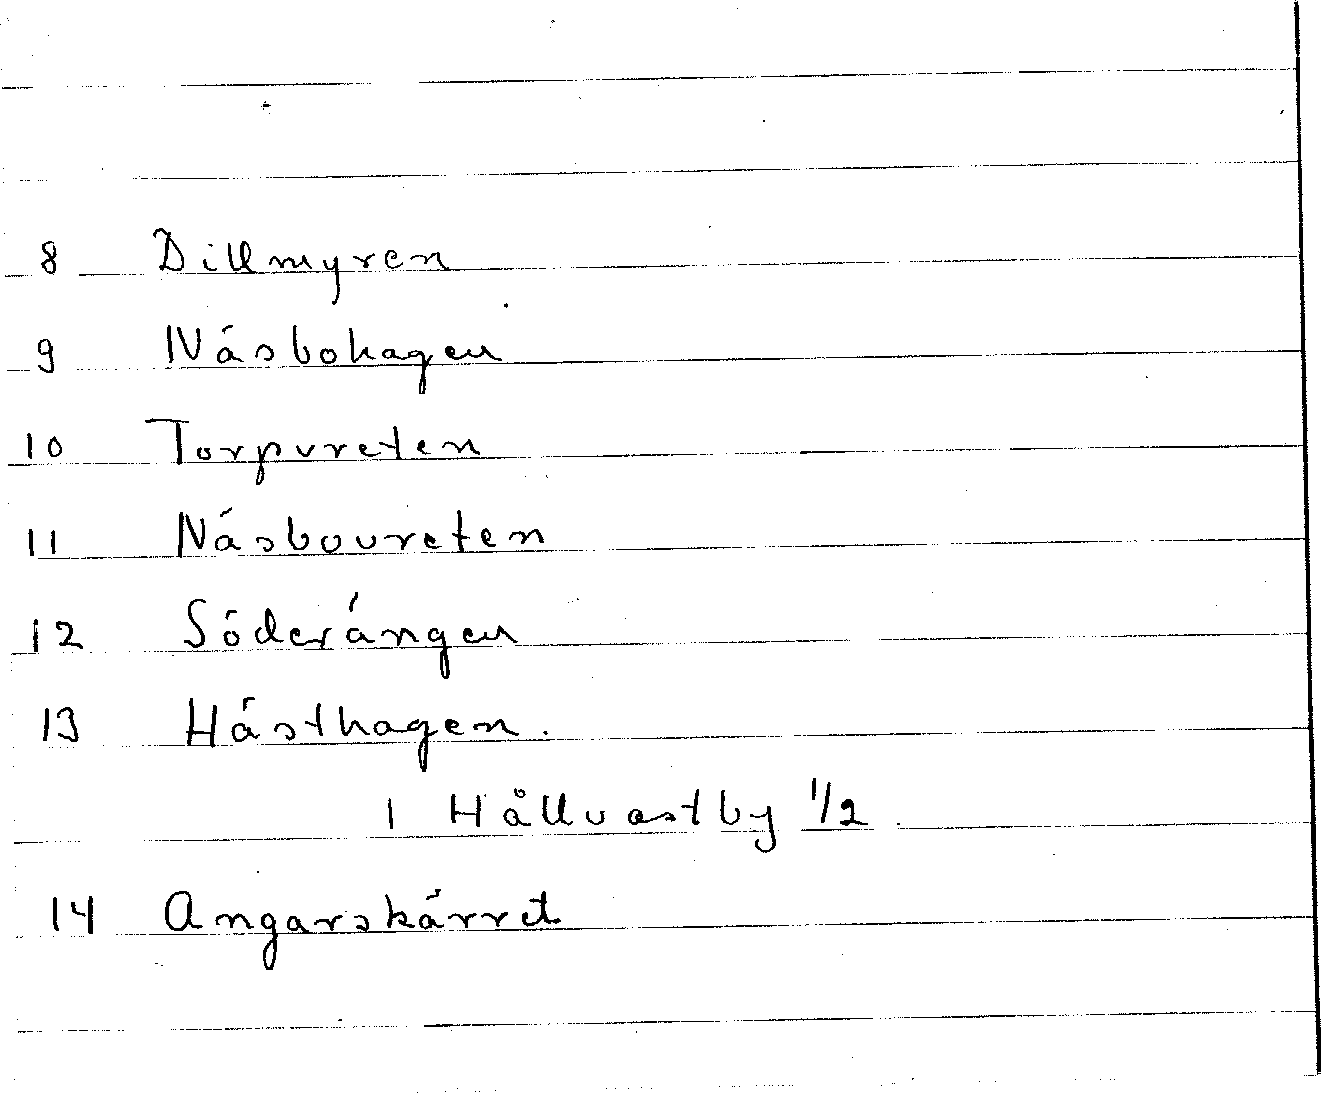 8 Dillmyren
9 Näsbohagen
10 Torpvreten
11 Näsbovreten
12 Söderängen
13 Hästhagen.
1 Hållvastby 1/2
14 Angarskärret